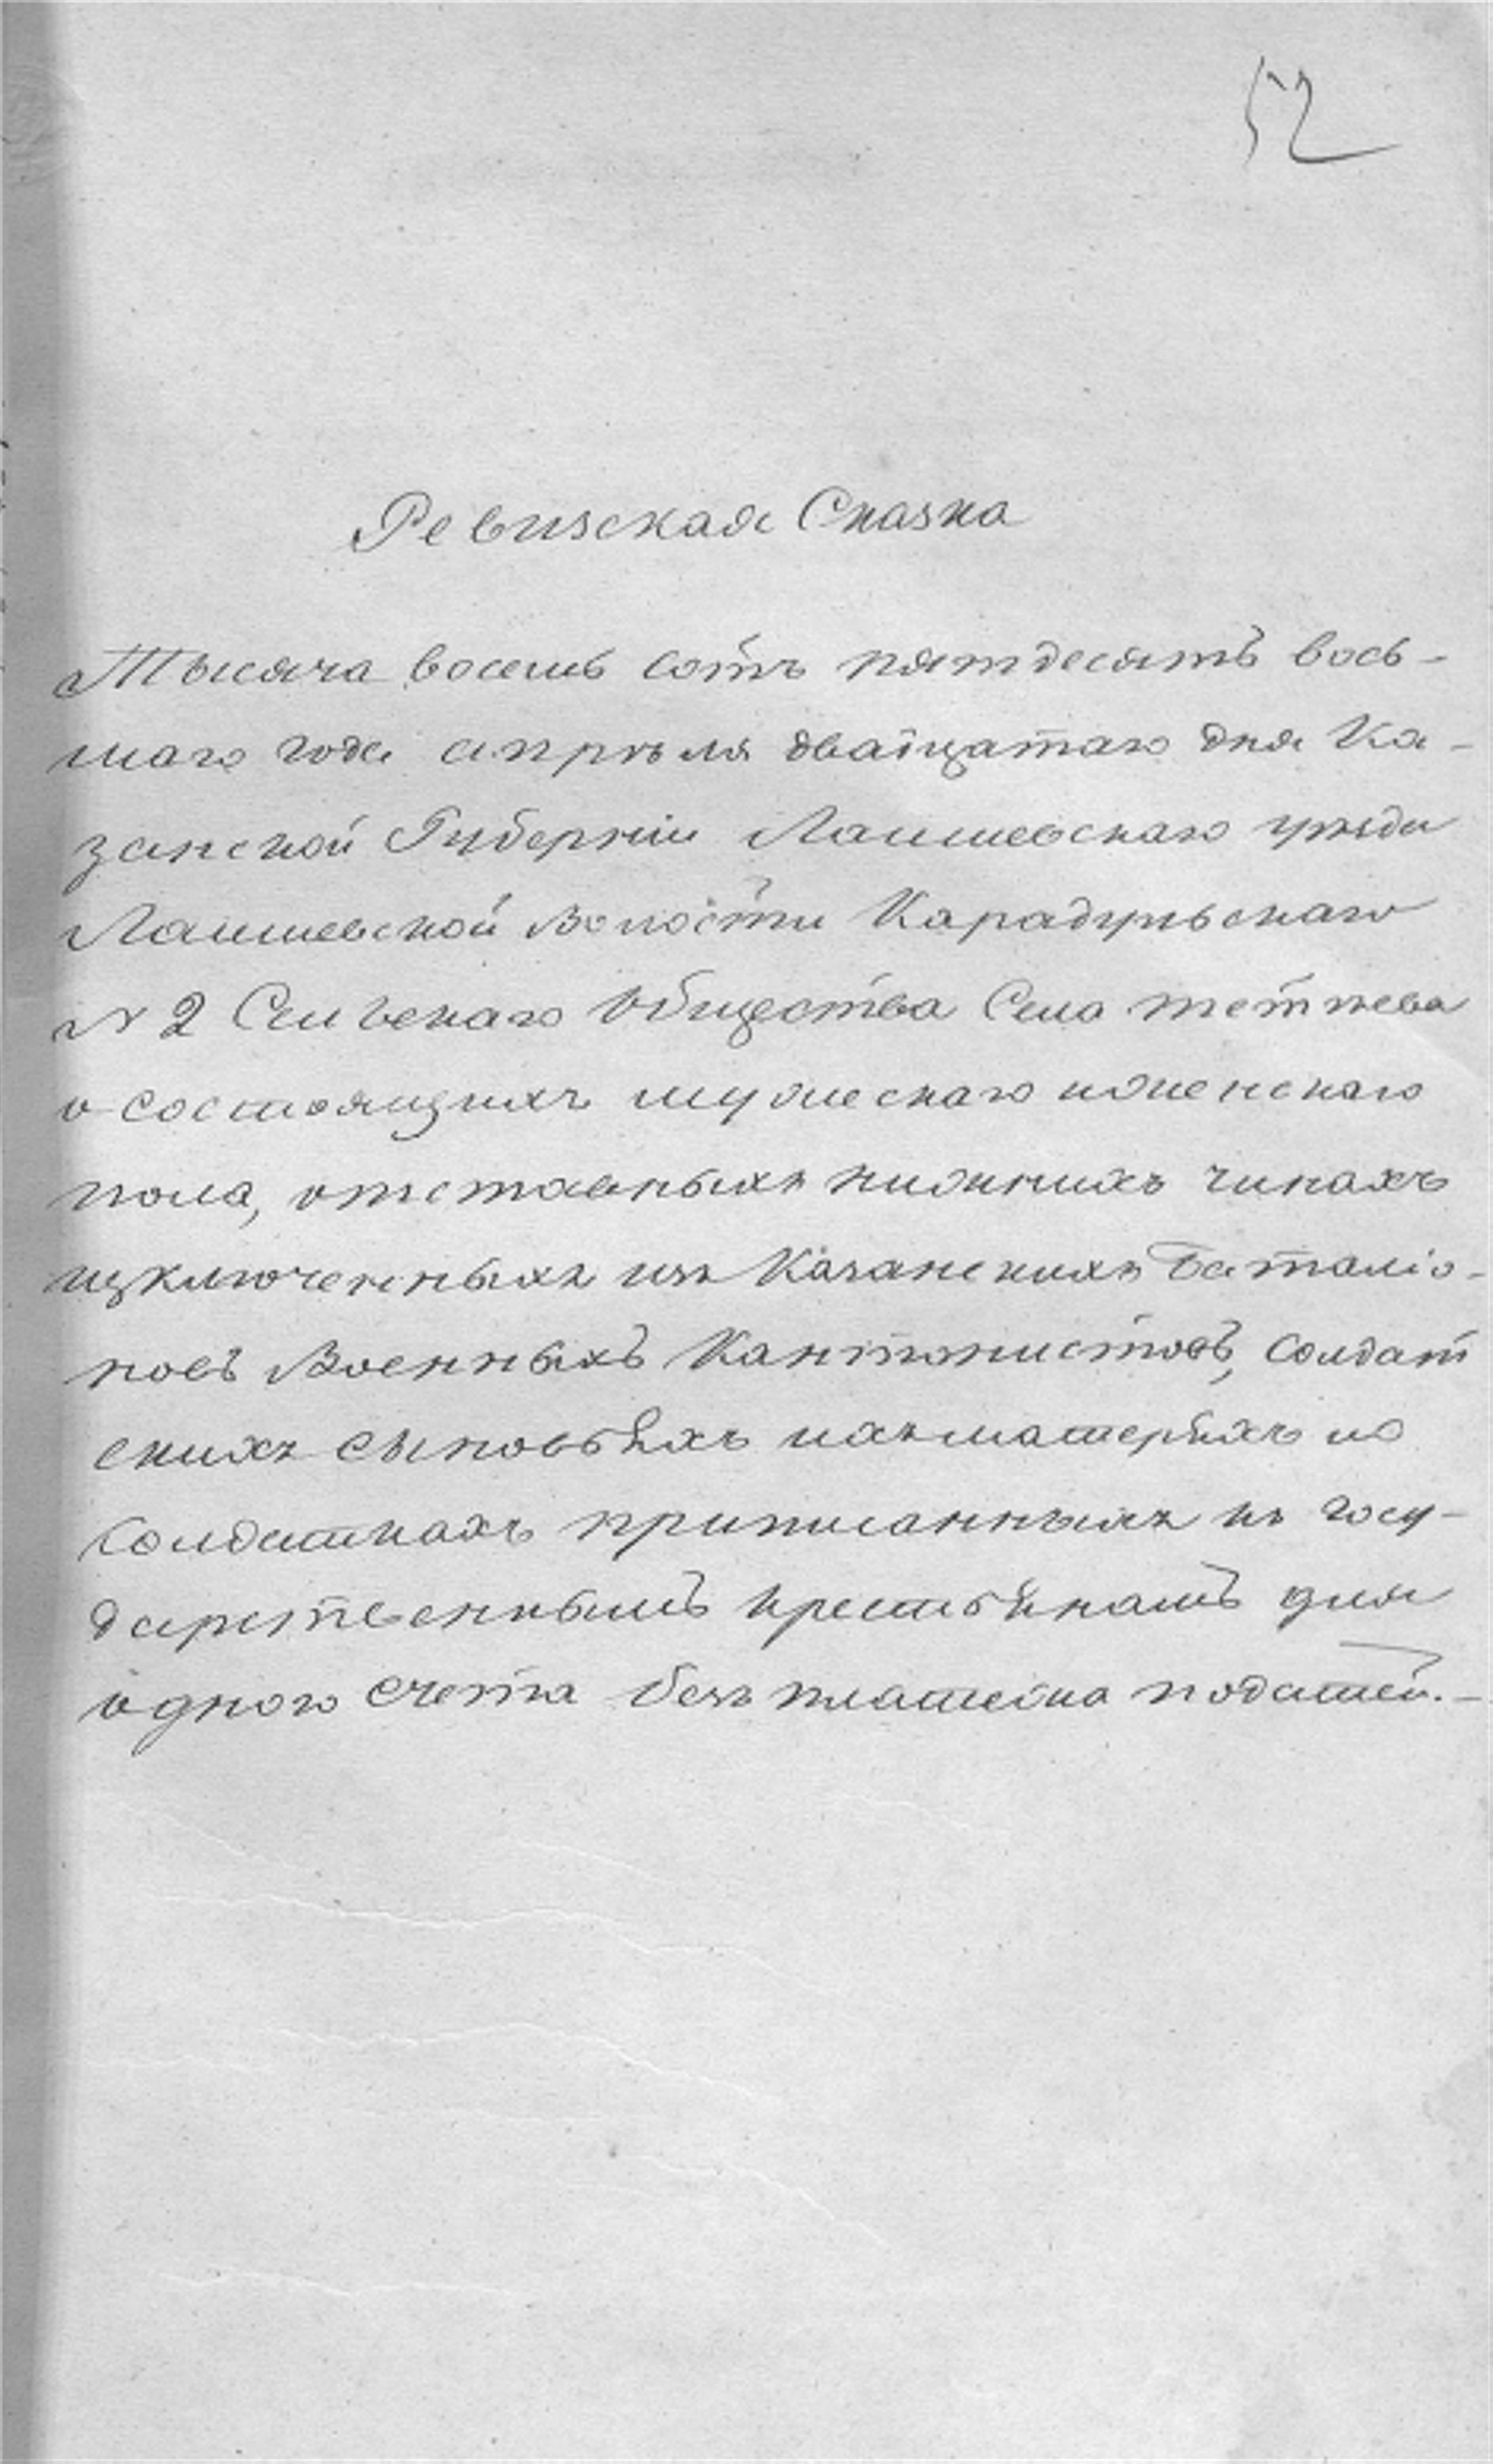 52
Ревизская Сказка
Тысяча восемь сотъ пятдесятъ вось-
маго года апрѣля двацатаго дня Ка-
занской Губерніи Лаишевскаго уѣзда
Лаишевской Волости Карадульскаго
№ 2 Сельскаго общества Села тетпева
о состоящихъ мужескаго иженскаго
пола, отставныхъ нижнихъ чинахъ
изключенныхъ изъ Казанскихъ Баталіо-
новъ Военныхъ Кантонистовъ, солдат
скихъ сыновьяхъ ихъматеряхъ ио
солдаткахъ приписанныхъ къ госу-
дарственнымъ крестьянамъ для
одного счета безъ платежа податей.-